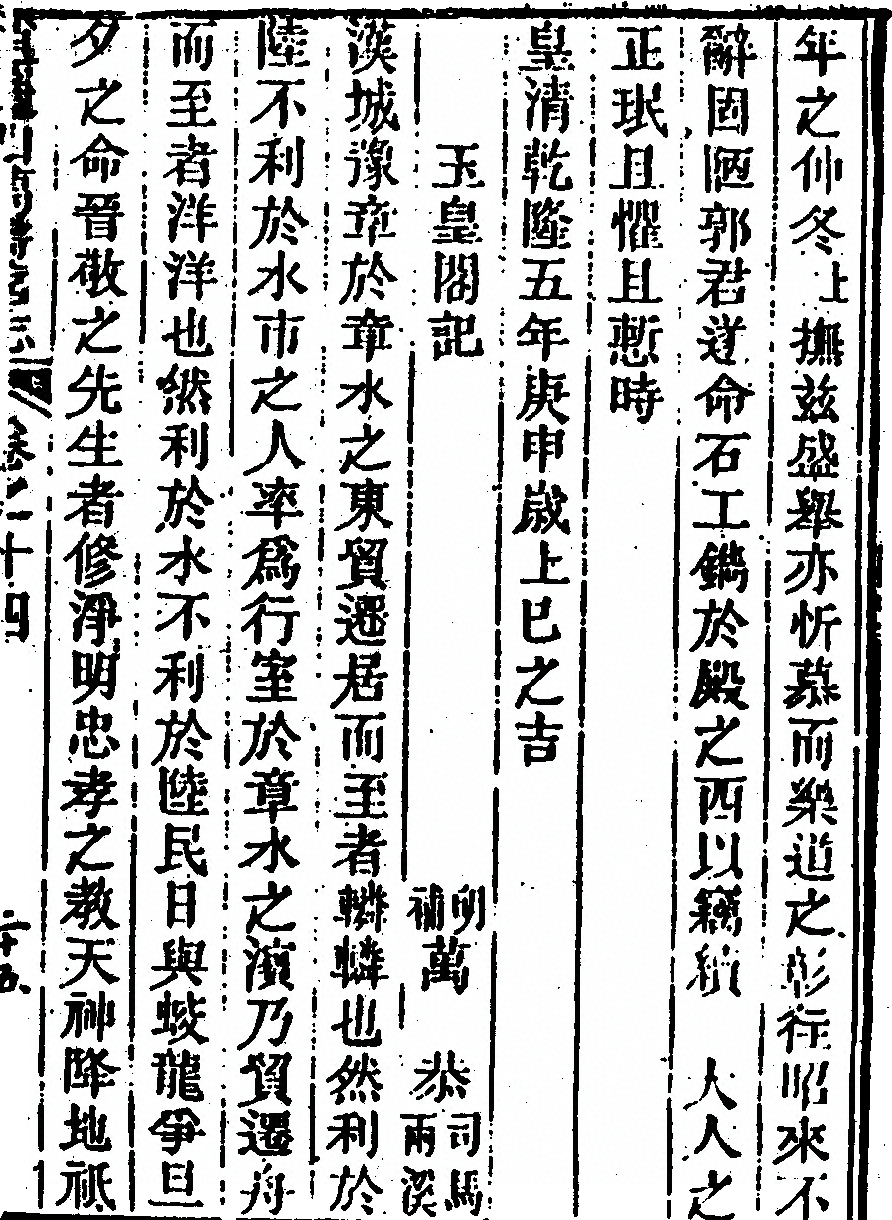 年之仲冬上撫茲盛舉亦忻慕而樂道之彰往昭來不
辭固陋郭君遂命石工鐫於殿之西以竊續 大人之
正珉且懼且慙時
皇清乾隆五年庚申歲上巳之吉
玉皇閣記 明補萬 恭司馬兩溪
漢城豫章於章水之東貿遷居而至者轔轔也然利於
陸不利於水市之人率爲行室於章水之濱乃貿遷舟
而至者洋洋也然利於水不利於陸民日與蛟龍爭旦
夕之命晉敬之先生者修淨明忠孝之教天神降地祇
卷之十四
二十五